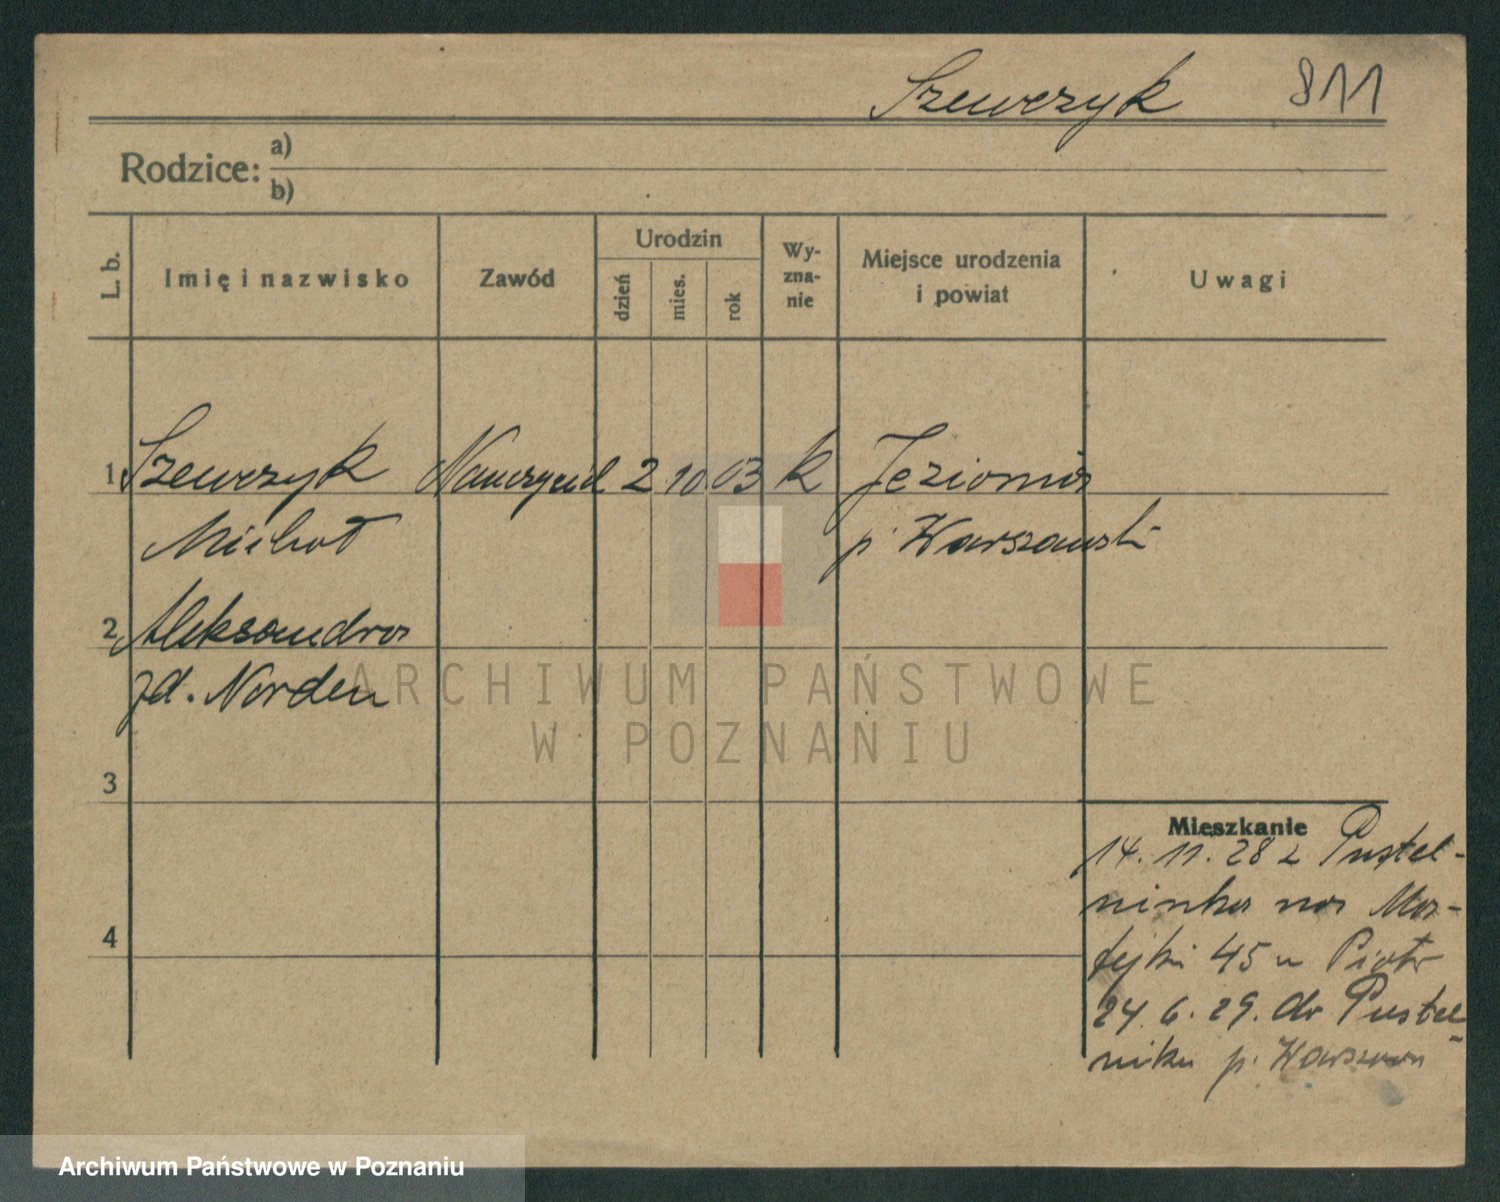 Szewczyk 811
Rodzice: a)
b)
L. b.
Imię i nazwisko
Zawód
Urodzin
dzień
mies.
rok
Wy-
zna-
nie
Miejsce urodzenia
i powiat
Uwagi
1 Szewczyk Nauczyciel 2 10 03 k Jeziorna
Michał p. Warszawski
2 Aleksandra
zd. Norden
3
4
Mieszkanie
14. 11. 28 z Pustel-
ninka na Ma-
tejki 45 u Piotr
24. 6. 29. do Pustel-
nika p. Warszawa
ARCHIWUM PAŃSTWOWE
W POZNANIU
Archiwum Państwowe w Poznaniu